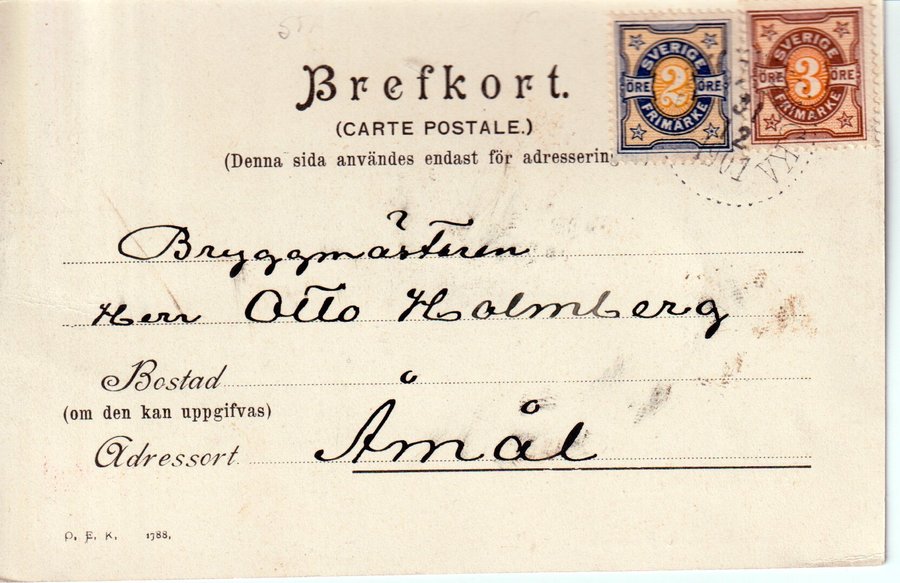 Brefkort.
(CARTE POSTALE.)
(Denna sida användes endast för adressering
SVERIGE
2
ÖRE ÖRE
FRIMÄRKE
SVERIGE
3
ÖRE ÖRE
FRIMÄRKE
Bryggmästaren
Herr Otto Holmberg
Bostad
(om den kan uppgifvas)
Adressort Åmål
O. E. K. 1788.